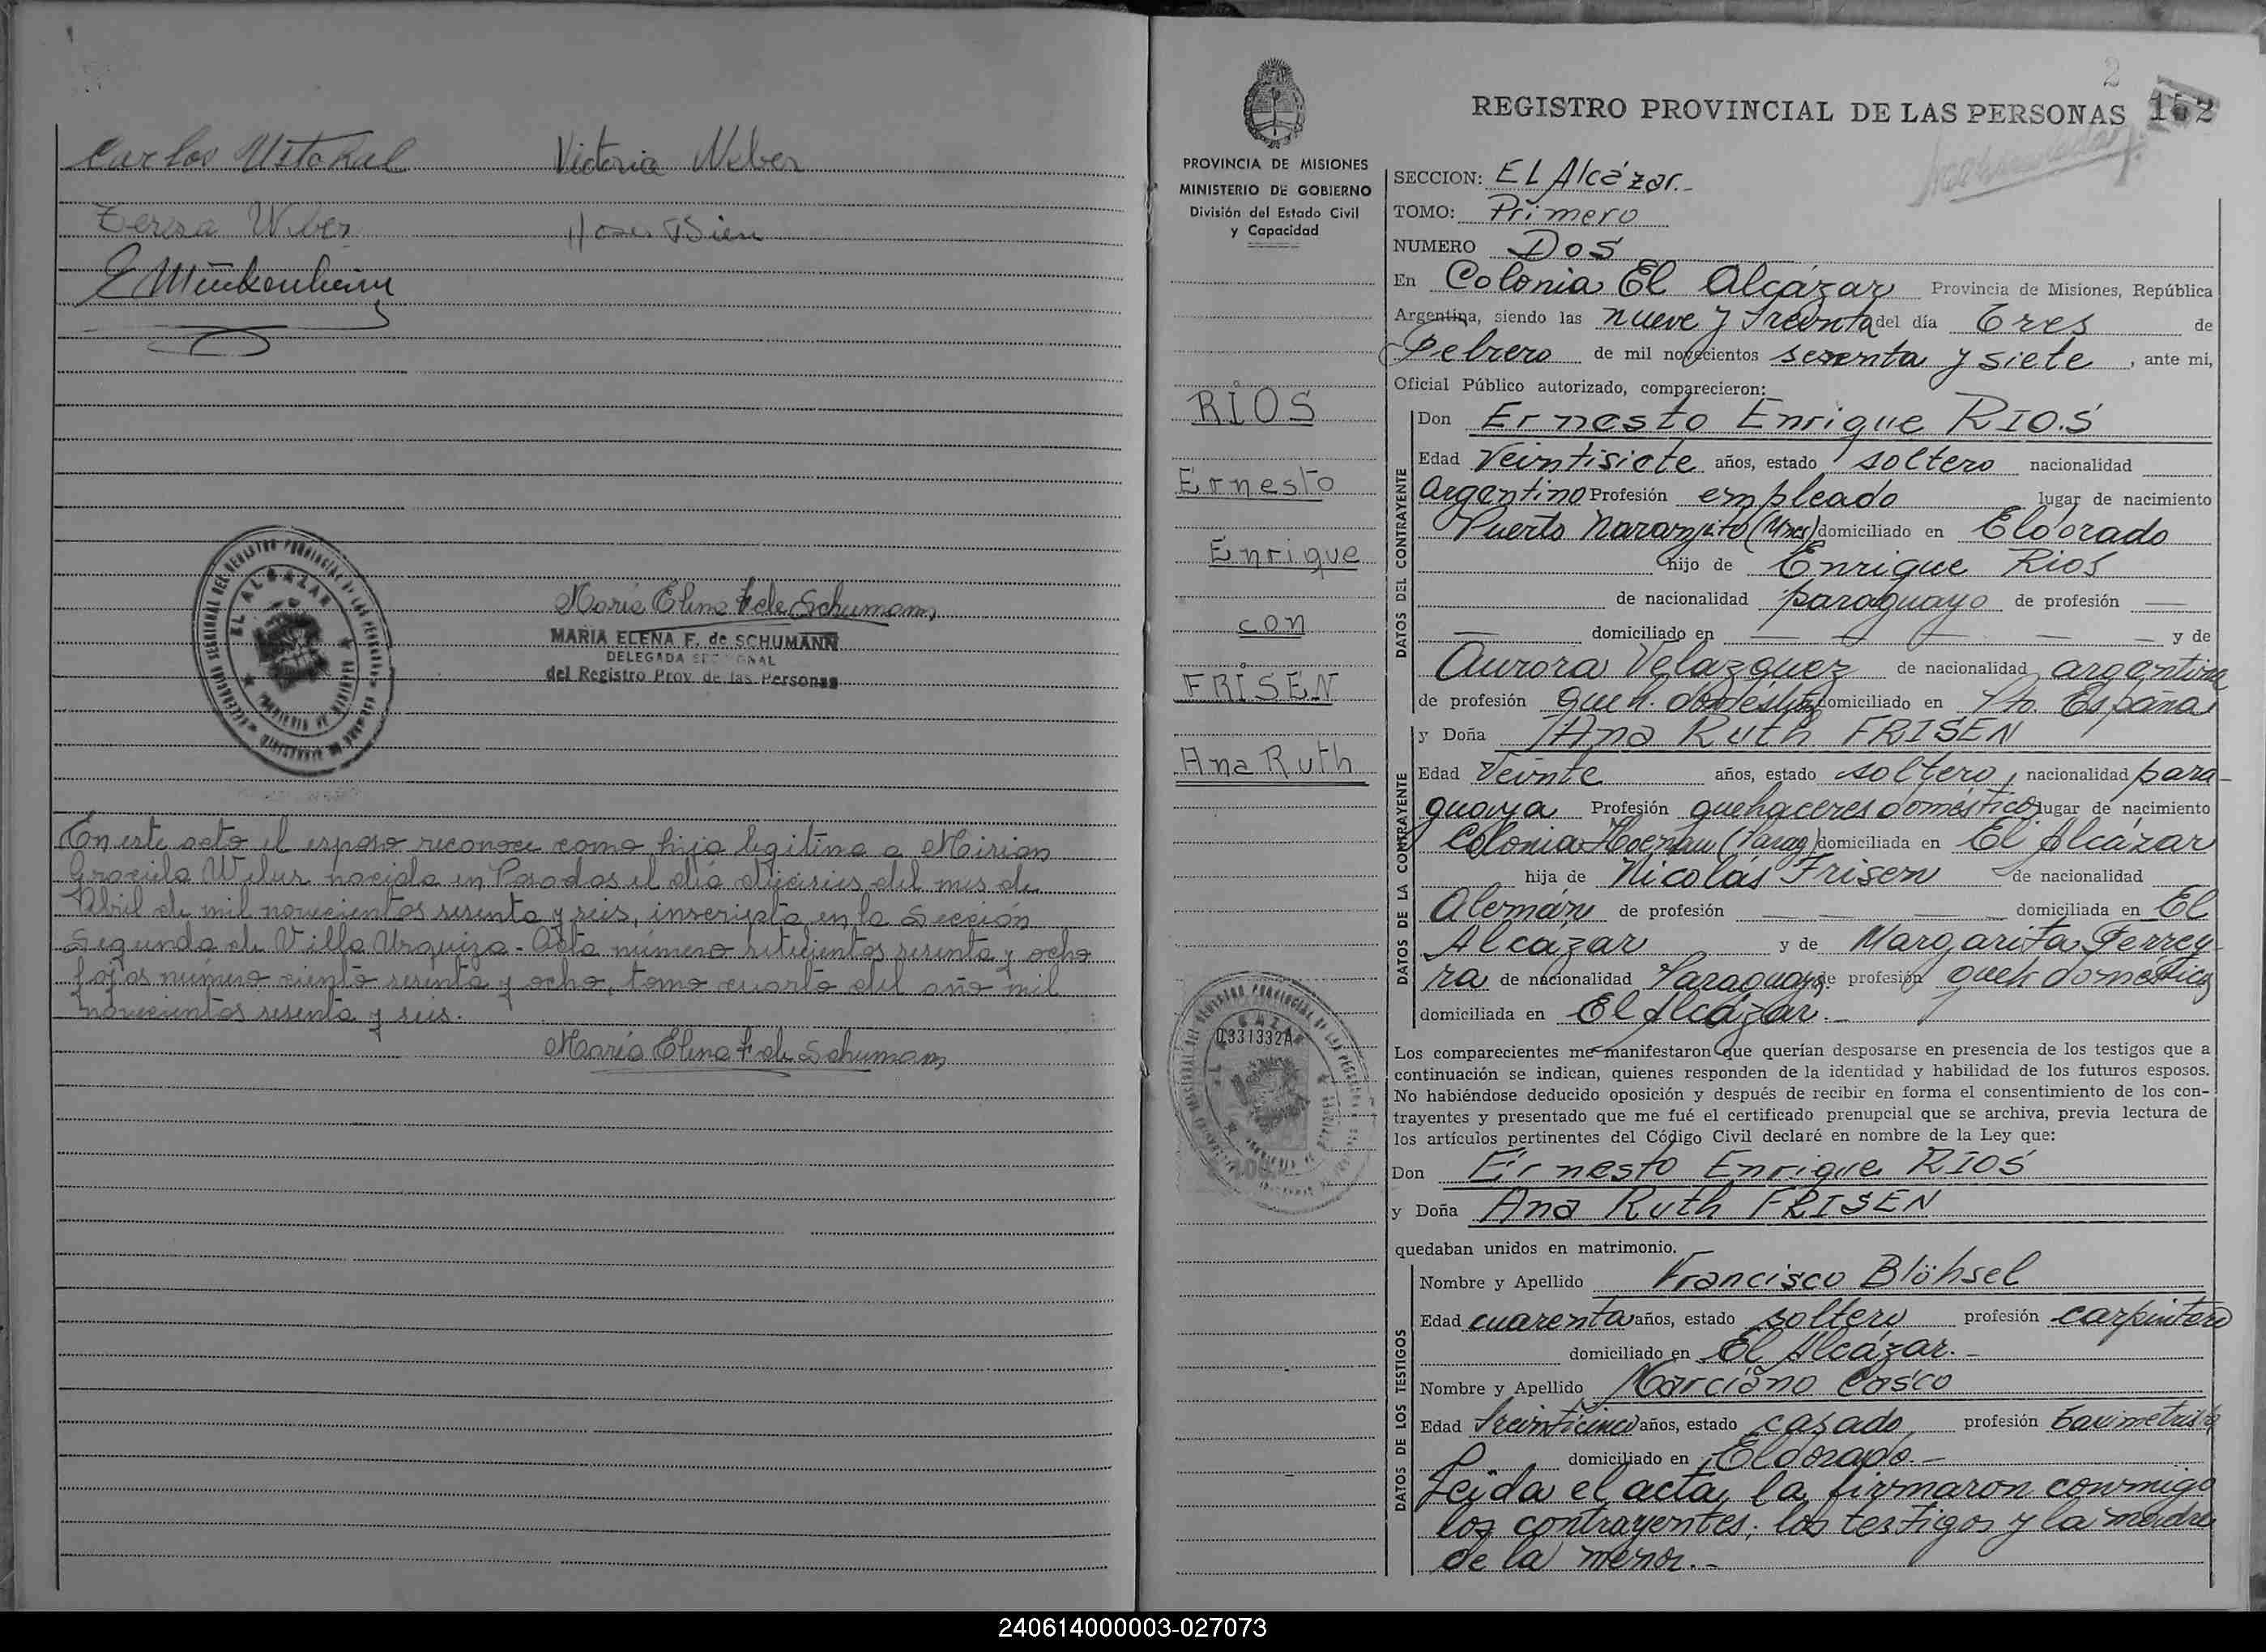 Carlos Utokal Victoria Weber
Teresa Weber
E Münkenheim
EL ALCAZAR
María Elena F de Schumann
MARIA ELENA F. de SCHUMANN
DELEGADA SECCIONAL
del Registro Prov. de las Personas
En este acto el esposo reconoce como hija legitima a Mirian
Graciela Weber nacida en Posadas el día dieciseis del mes de
Abril de mil novecientos sesenta y seis, inscripta en la Sección
Segunda de Villa Urquiza - Acta número setecientos sesenta y ocho
fojas número ciento sesenta y ocho, tomo cuarto del año mil
novecientos sesenta y seis.
María Elena F de Schumann
PROVINCIA DE MISIONES
MINISTERIO DE GOBIERNO
División del Estado Civil
y Capacidad
RIOS
Ernesto
Enrique
con
FRISEN
Ana Ruth
0331332A
2
REGISTRO PROVINCIAL DE LAS PERSONAS 152
SECCION: EL Alcázar.-
TOMO: Primero
NUMERO Dos
En Colonia El Alcázar Provincia de Misiones, República
Argentina, siendo las nueve y treinta del día Tres de
Febrero de mil novecientos sesenta y siete, ante mi,
Oficial Público autorizado, comparecieron:
DATOS DEL CONTRAYENTE
Don Ernesto Enrique RIOS
Edad Veintisiete años, estado soltero nacionalidad
argentino Profesión empleado lugar de nacimiento
Puerto Naranjito (Mnes) domiciliado en Eldorado
hijo de Enrique Rios
de nacionalidad paraguayo de profesión —
— domiciliado en — — — — — y de
Aurora Velazquez de nacionalidad argentina
de profesión queh. domésticos domiciliado en Pto. España
DATOS DE LA CONTRAYENTE
y Doña Ana Ruth FRISEN
Edad Veinte años, estado soltero, nacionalidad para-
guaya Profesión quehaceres domésticos lugar de nacimiento
Colonia Hoenau (Parag) domiciliada en El Alcázar
hija de Nicolás Frisen de nacionalidad
Alemán de profesión — — — — domiciliada en El
Alcázar y de Margarita Ferrey-
ra de nacionalidad Paraguaya de profesión queh domésticos
domiciliada en El Alcázar.-
Los comparecientes me manifestaron que querían desposarse en presencia de los testigos que a
continuación se indican, quienes responden de la identidad y habilidad de los futuros esposos.
No habiéndose deducido oposición y después de recibir en forma el consentimiento de los con-
trayentes y presentado que me fué el certificado prenupcial que se archiva, previa lectura de
los artículos pertinentes del Código Civil declaré en nombre de la Ley que:
Don Ernesto Enrique RIOS
y Doña Ana Ruth FRISEN
quedaban unidos en matrimonio.
DATOS DE LOS TESTIGOS
Nombre y Apellido Francisco Blöhsel
Edad cuarenta años, estado soltero profesión carpintero
domiciliado en El Alcázar.-
Nombre y Apellido Marciano Casco
Edad Treinticinco años, estado casado profesión taximetrista
domiciliado en Eldorado.-
Leída el acta, la firmaron conmigo
los contrayentes, los testigos y la madre
de la menor.-
240614000003-027073